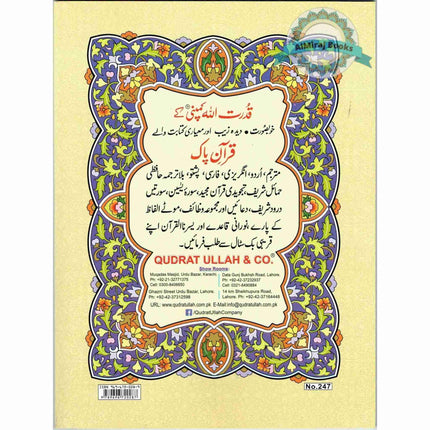 AlMiraj Books
قدرت اللہ کمپنی® کے
خوبصورت، دیدہ زیب اور معیاری کتابت والے
قرآن پاک
مترجم، اُردو، انگریزی، فارسی، پشتو، بلا ترجمہ حافظی
حمائل شریف، تجویدی قرآن مجید، سورۃ یٰسین، سورتیں
درود شریف، دعائیں اور مجموعہ وظائف، موٹے الفاظ
کے پارے، نورانی قاعدے اور یسرنا القرآن اپنے
قریبی بک سٹال سے طلب فرمائیں۔
QUDRAT ULLAH & CO.®
Show Rooms:
Muqadas Masjid, Urdu Bazar, Karachi
Ph: +92-21-32771075
Cell: 0300-8406650
Data Gunj Bukhsh Road, Lahore.
Ph: +92-42-37232937
Cell: 0321-8490884
Ghazni Street Urdu Bazar, Lahore.
Ph: +92-42-37312598
14 km Sheikhupura Road,
Lahore. Ph: +92-42-37164448
URL: www.qudratullah.com.pk E-Mail:info@qudratullah.com.pk
/QudratUllahCompany
No.247